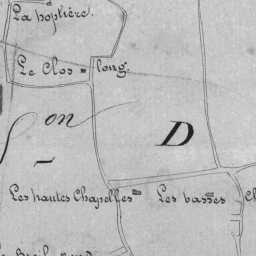 La hoptière.
Le Clos-long.
on
D
Les hautes Chapelles
Les basses Ch